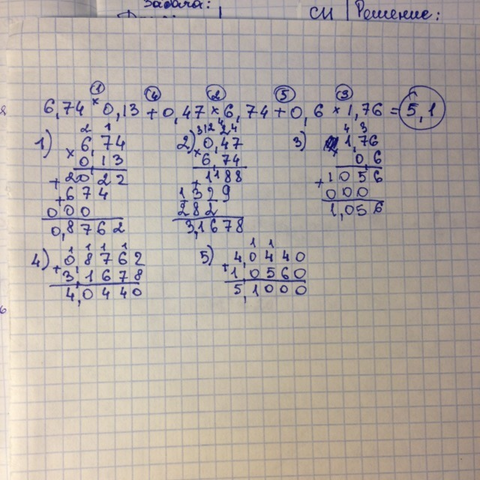 Задача:
СИ Решение:
① ④ ② ⑤ ③
6,74 × 0,13 + 0,47 × 6,74 + 0,6 × 1,76 = 5,1
1) 2) 3)
2 1
6,74
× 0,13
+ 2022
+ 674
000
0,8762
0,47
× 6,74
+ 1188
1329
282
3,1678
4 3
1,76
× 0,6
+ 1056
000
1,056
4) 5)
1 1 1 1
0,8762
+ 3,1678
4,0440
1 1
4,0440
+ 1,0560
5,1000